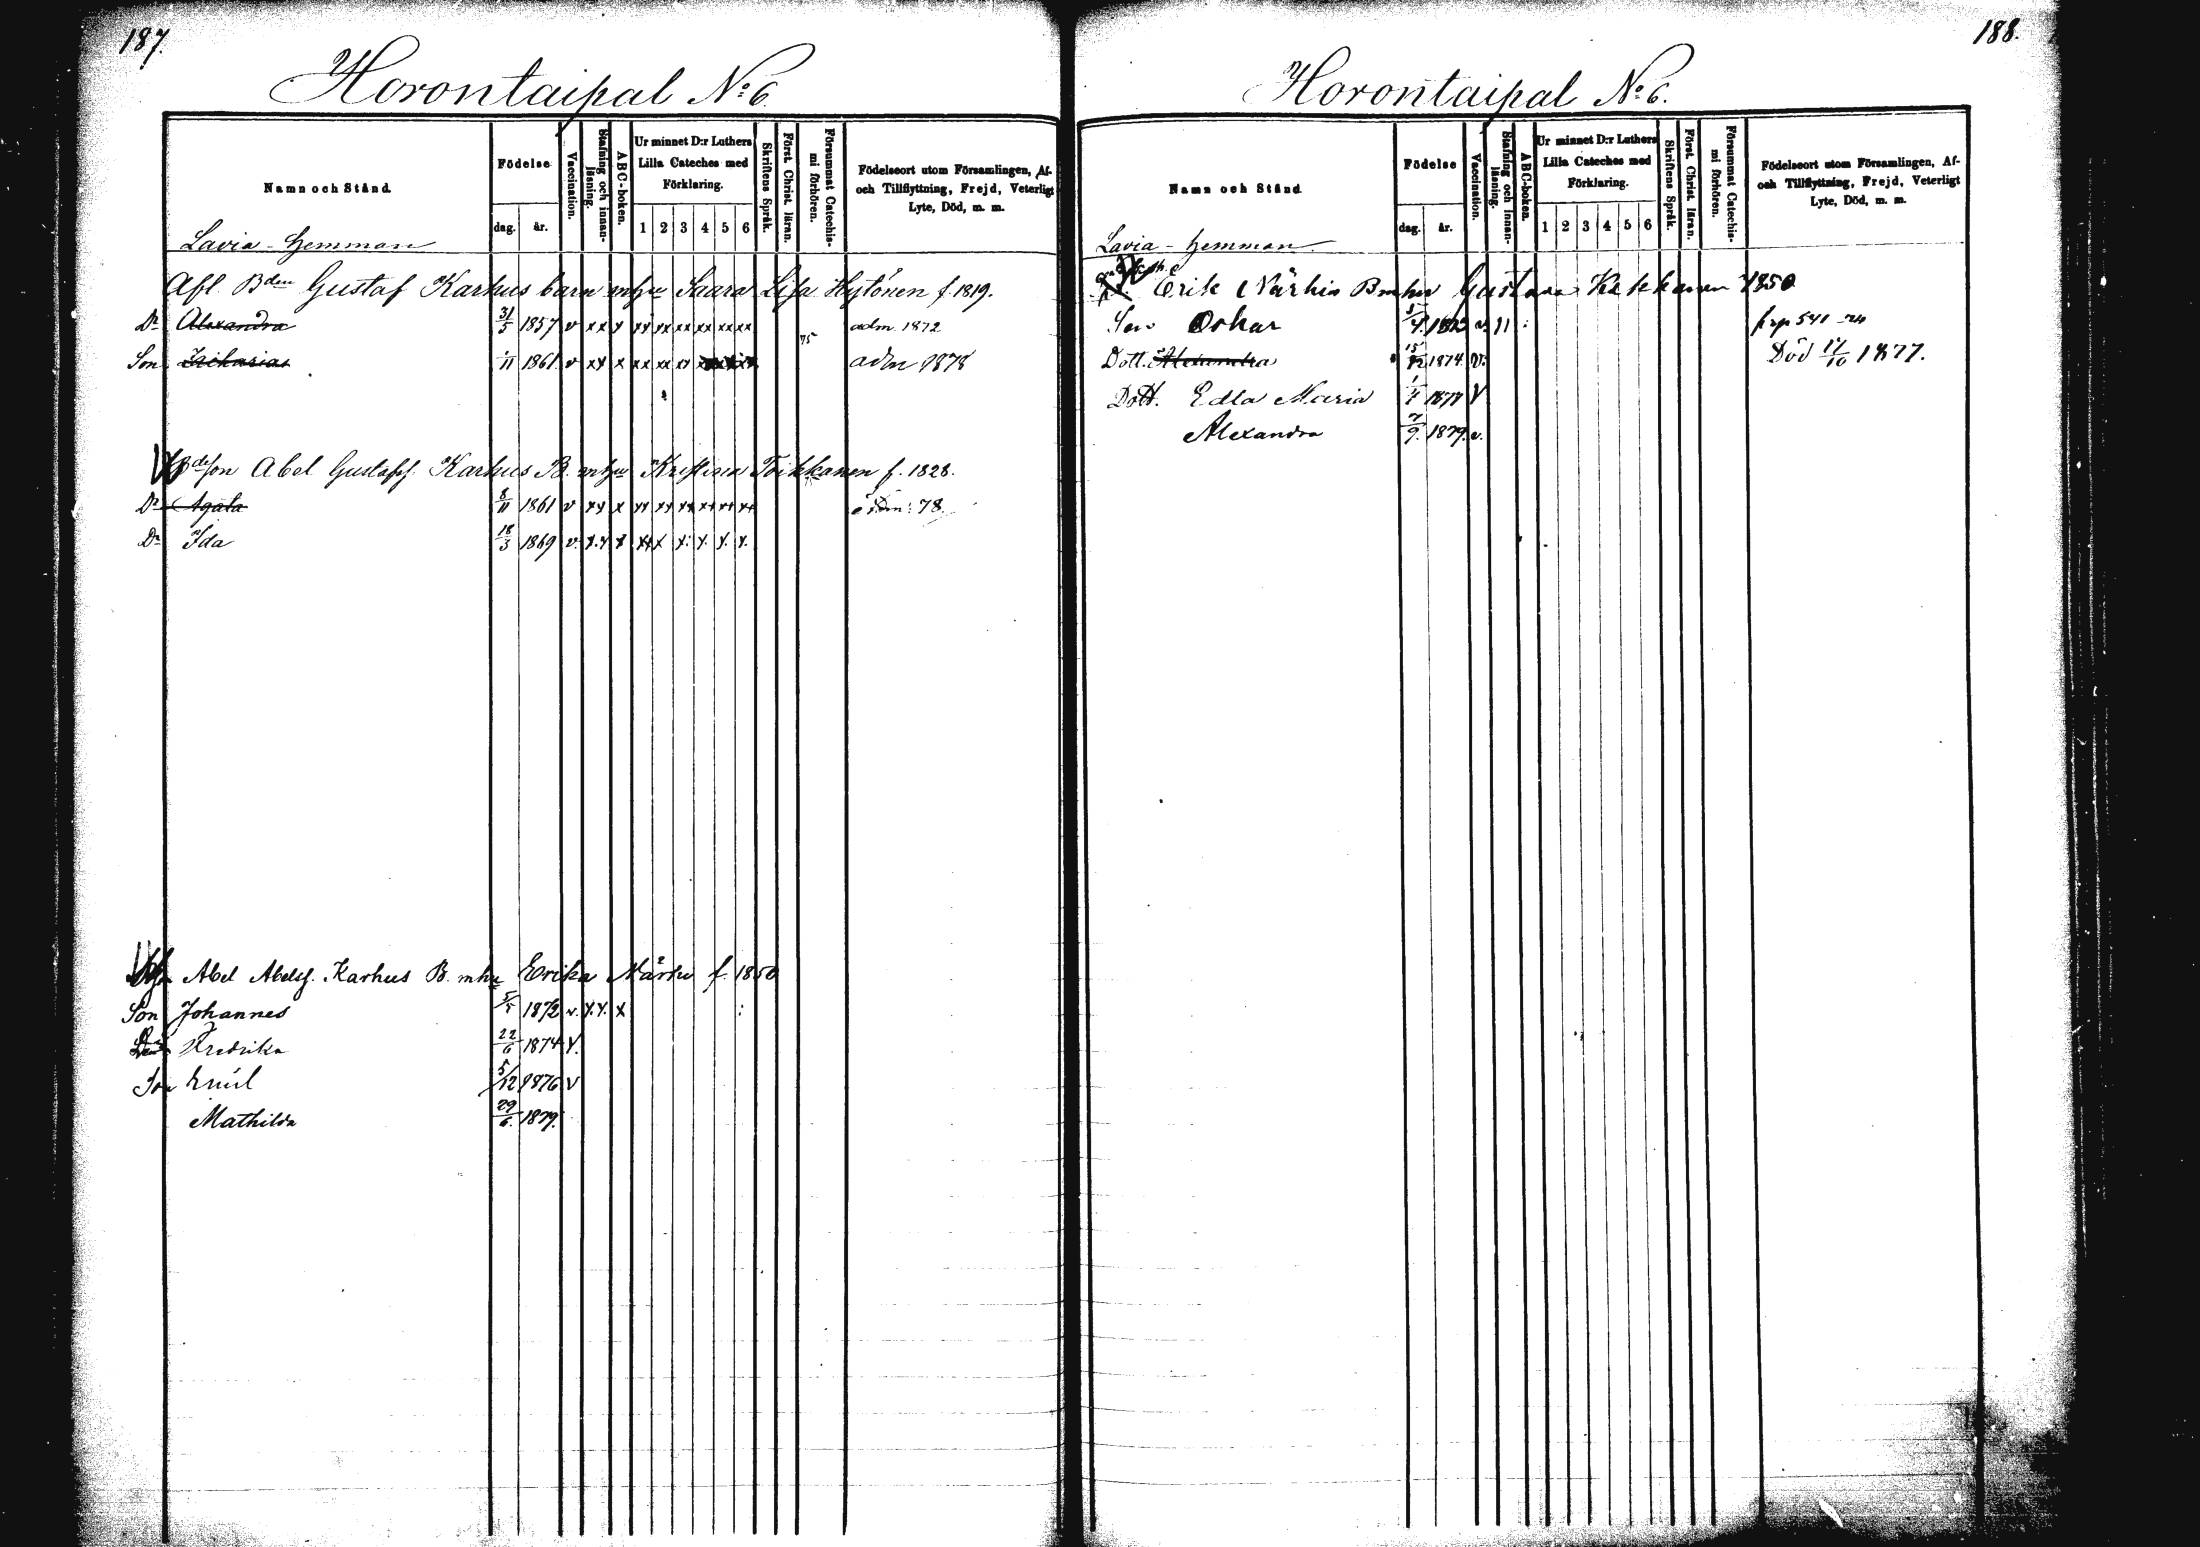 187.
Horontaipal No: 6.
Namn och Stånd.
Födelse
dag. år.
Vaccination.
Stafning och innan-läsning.
ABC-boken.
Ur minnet D:r Luthers Lilla Cateches med Förklaring.
1 2 3 4 5 6
Skriftens Språk.
Först. Christ. läran.
Försummat Catechis-mi förhören.
Födelseort utom Församlingen, Af-
och Tillflyttning, Frejd, Veterligt
Lyte, Död, m. m.
Lavia - hemman
Afl. Bden Gustaf Karhus barn mhu Saara Lisa Hytönen f. 1819.
Dr Alexandra 31/5 1857 v xx x xx xx xx xx xx xx adm. 1872
75
Son 11 1861 v xx x xx xx xx adm 1878
Bdeson Abel Gustafsf. Karhus B. mhu Kristina Toikkanen f. 1828.
Dr Agata 8/11 1861 v xx x xx xx xx xx xx xx adm: 78.
Dr Ida 18/3 1869 v. x.x x xx x x. x. x. x.
Abel Abelsf. Karhus B. mhu Erika Närhi f. 1850
Son Johannes 5/5 1872 v. x.x. x
Fredrika 22/6 1874 v.
Son Emil 5/12 1876 v
Mathilda 29/6. 1879.
188.
Horontaipal No: 6.
Namn och Stånd
Födelse
dag. år.
Vaccination.
Stafning och innan-läsning.
ABC-boken.
Ur minnet D:r Luthers Lilla Cateches med Förklaring.
1 2 3 4 5 6
Skriftens Språk.
Först. Christ. läran.
Försummat Catechis-mi förhören.
Födelseort utom Församlingen, Af-
och Tillflyttning, Frejd, Veterligt
Lyte, Död, m. m.
Lavia - hemman
Erik Närhis B mhu Gustava Kekkanen 1850
Son Oskar 5/4 v. 11
Dott. Alexandra 15/12 1874. v. Död 17/10 1877.
Dott. Edla Maria v
Alexandra 7/9. 1879. v.